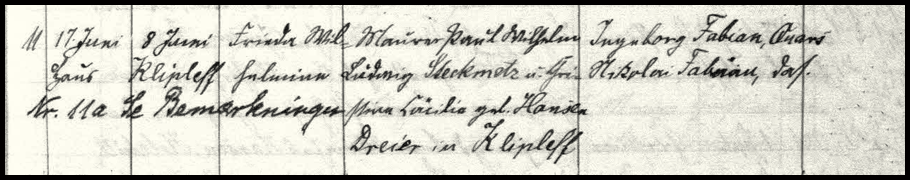 11 17. Juni 8 Juni Frieda Wil- Maurer Paul Wilhelm Ingeborg Fabian, Quars
Haus Klipleff helmine Ludwig Steckmetz u. Chri- Nikolai Fabian, das.
Nr. 11a Se Bemærkninger stine Cäcilie geb. Hansen
Dreier in Klipleff